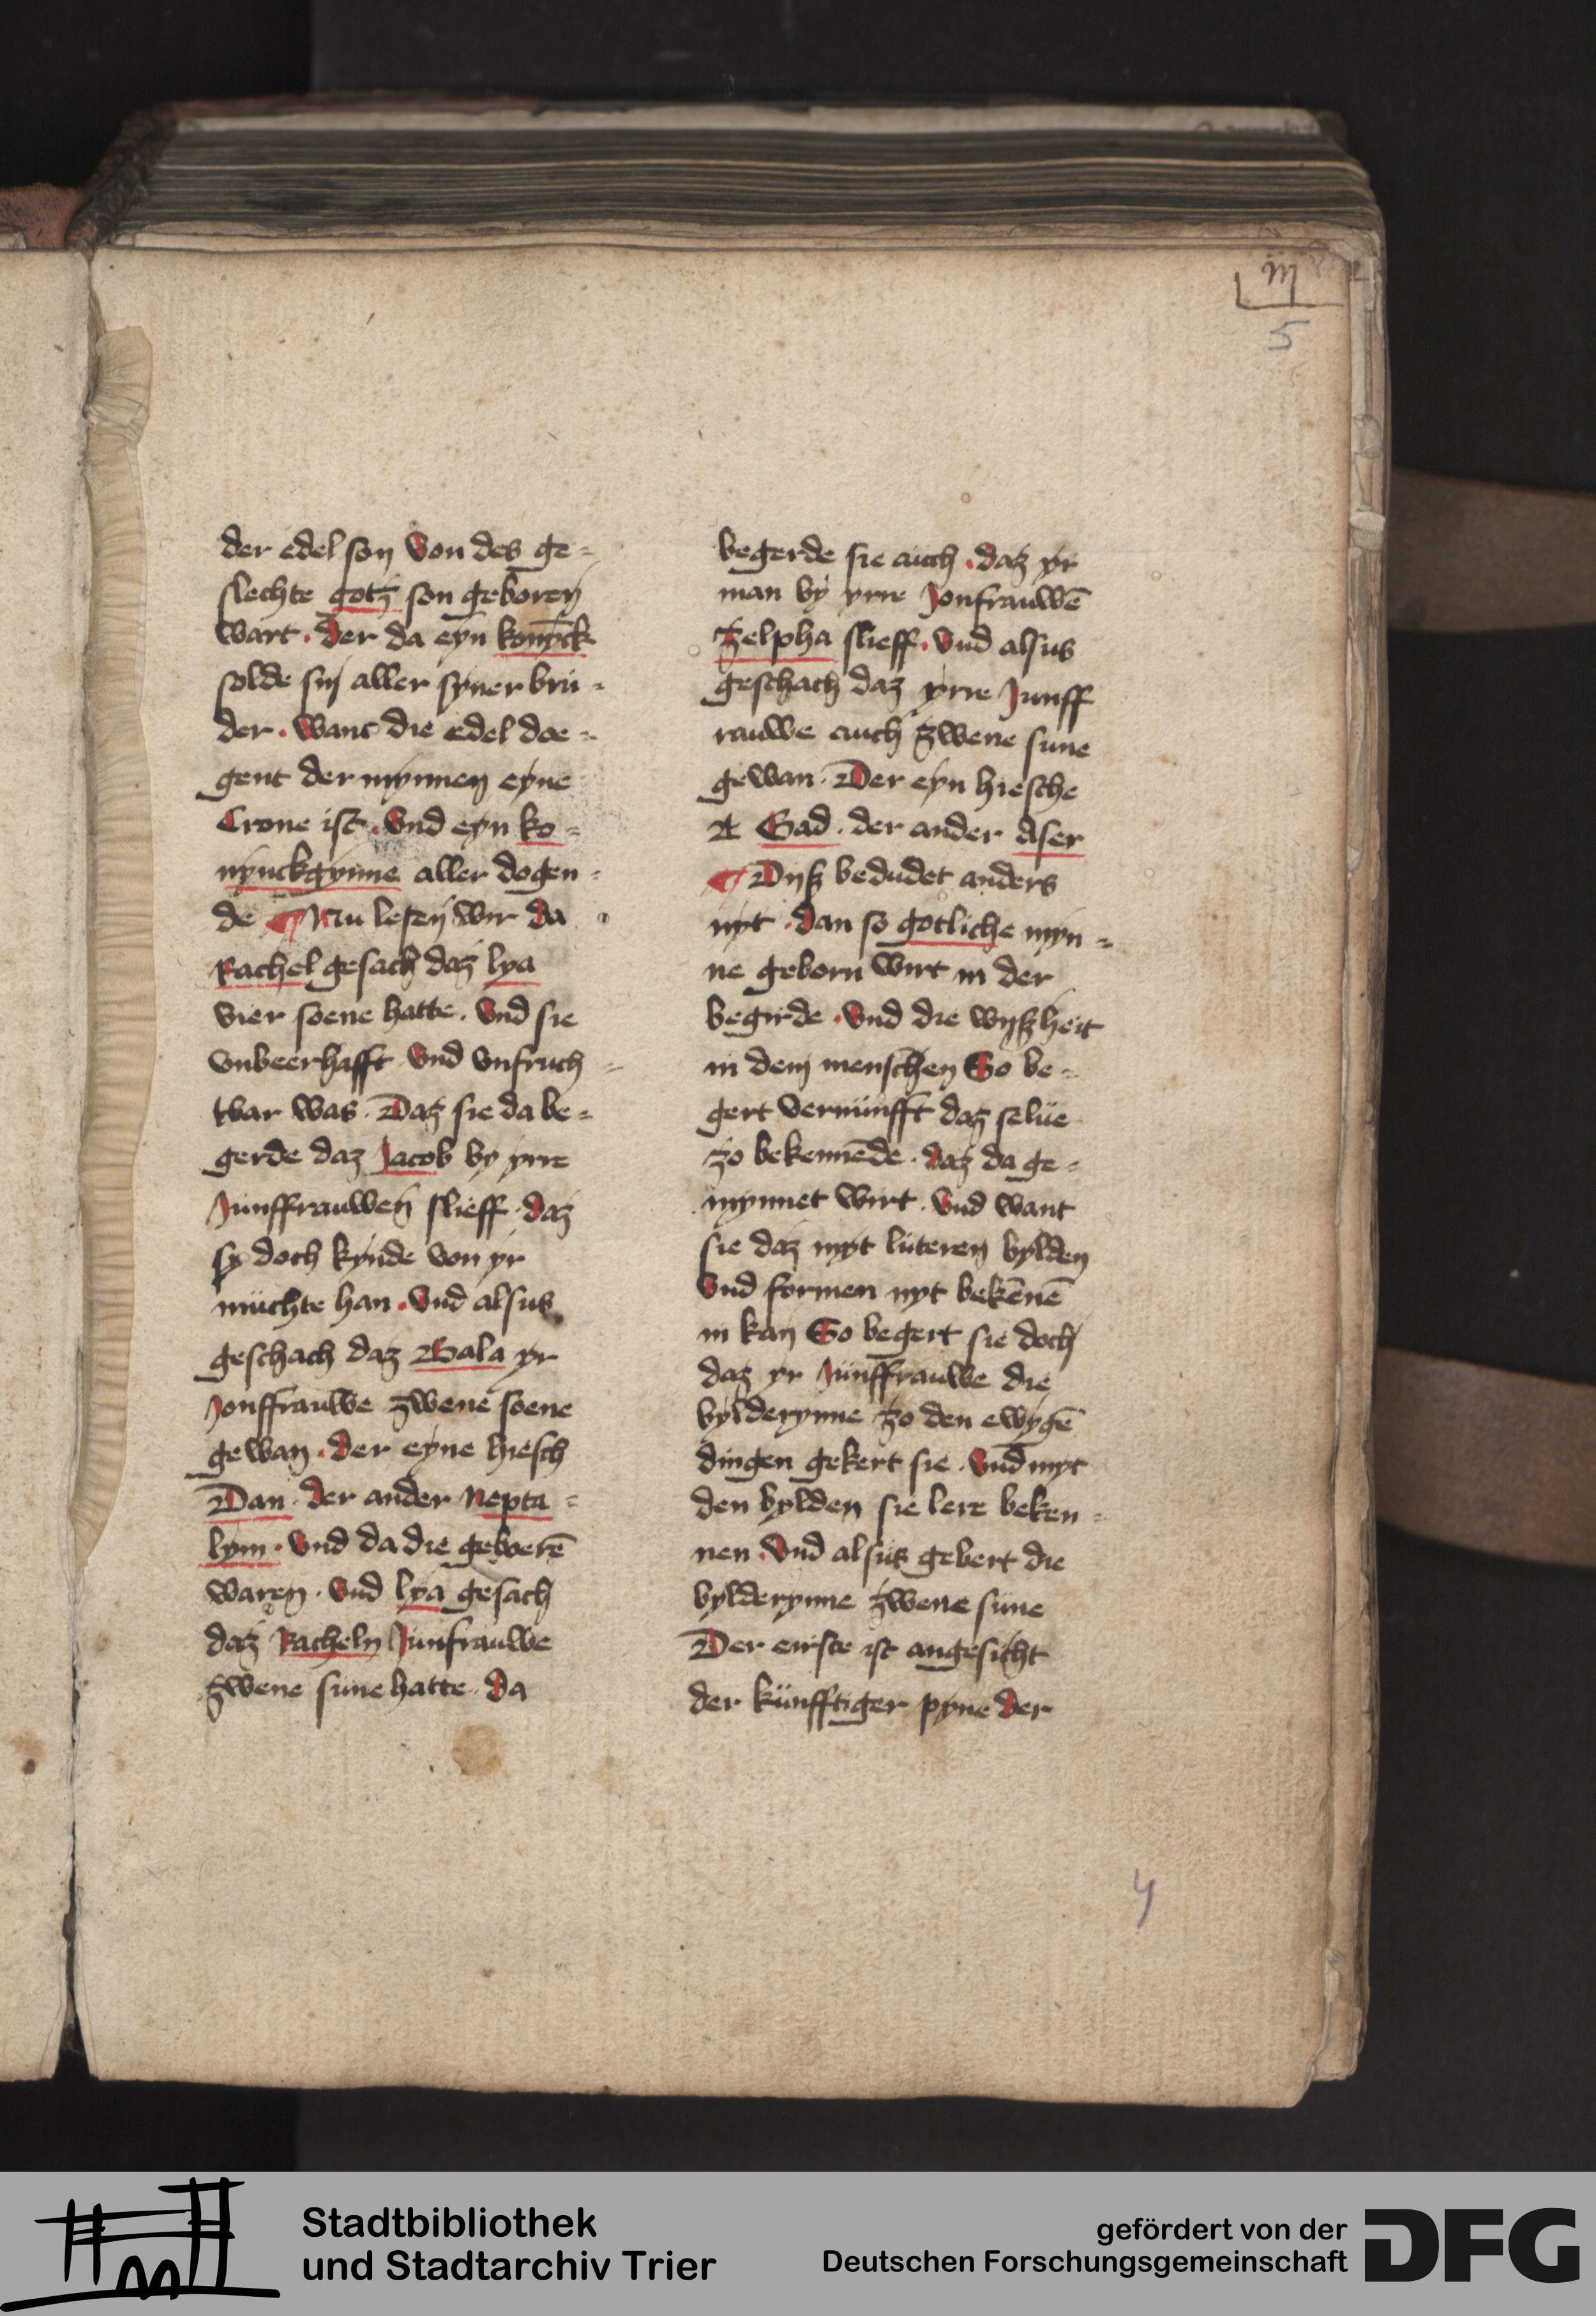 iij
5
der edel son von des ge=
slechte gotz son geboren
wart. der da eyn konyck
solde sin aller syner brü=
der. want die edel doe=
gent der mynnen eyne
Crone ist. vnd eyn ko=
nynckgynne aller dogen=
de ¶ Nu lesen wir da
Rachel gesach daz lya
vier soene hatte. vnd sie
vnbeerhafft vnd vnfruch=
tbar was. Daz sie da be=
gerde daz Jacob by yrre
Junffrauwen slieff. daz
sy doch kynde von yr
müchte han. vnd alsus
geschach daz Bala yr
Jonffrauwe zwene soene
gewan. der eyne hiesch
Dan. der ander Nepta=
lym. vnd da die geboerē
waren. vnd lya gesach
daz Racheln Junfrauwe
zwene sune hatte. da
begerde sie auch. daz yr
man by yrre Jonfrauwē
zelpha slieff. vnd alsus
geschach daz yrre Junff
rauwe auch zwene sune
gewan. Der eyn hiesche
Gad. der ander Aser
¶ Dyß bedudet anders
nyt. dan so gotliche myn=
ne geborn wirt in der
begirde. vnd die wyßheit
in dem menschen So be=
gert vernünfft daz selue
zo bekennēde. daz da ge=
mynnet wirt. vnd want
sie daz myt luteren bylden
vnd formen nyt bekēnē
in kan So begert sie doch
daz yr Junffrauwe die
bylderynne zo den ewygē
dingen gekert sie. vnd myt
den bylden sie lere beken=
nen. vnd alsus gebert die
bylderynne zwene sune
Der eirste ist angesicht
der künfftiger pyne der
4
Stadtbibliothek
und Stadtarchiv Trier
gefördert von der
Deutschen Forschungsgemeinschaft
DFG